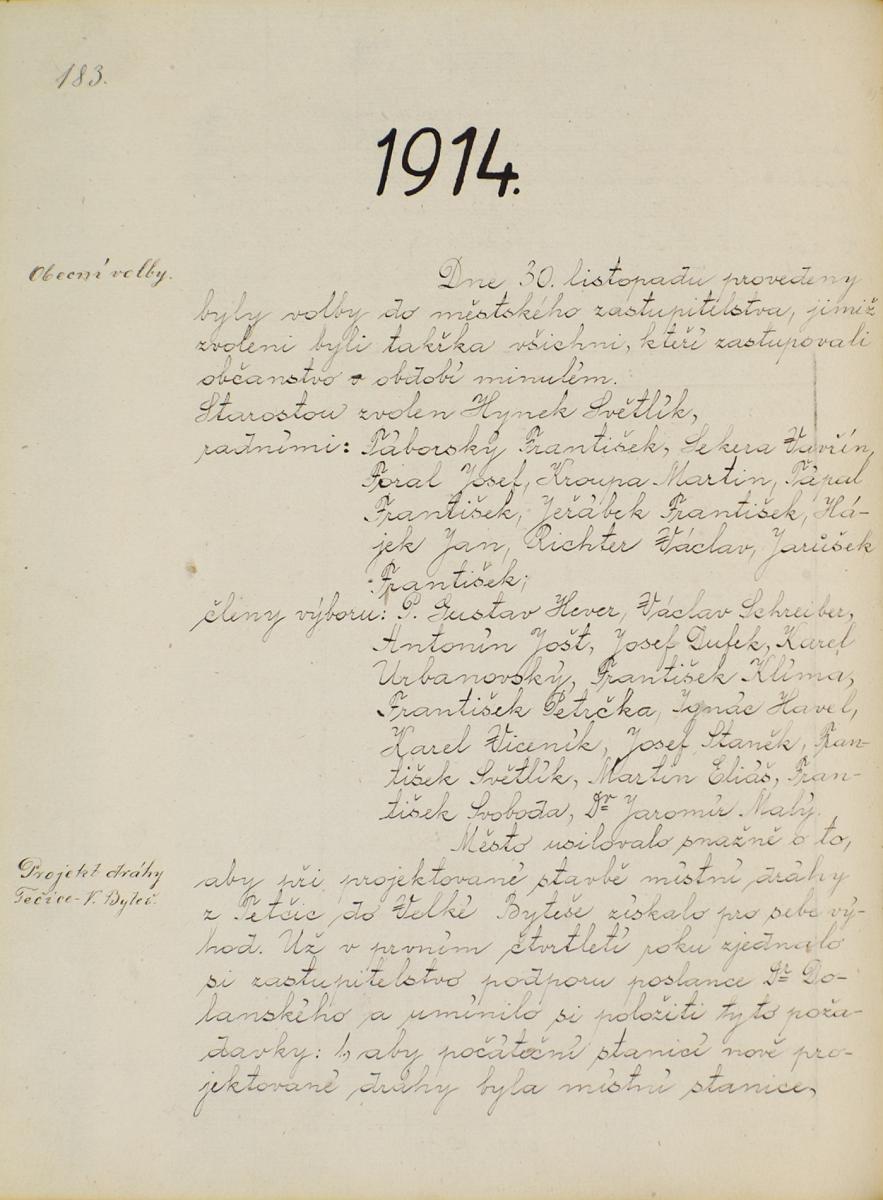 183.
1914.
Obecní volby.
Dne 30. listopadu provedeny
byly volby do městského zastupitelstva, jimiž
zvoleni byli takřka všichni, kteří zastupovali
občanstvo v období minulém.
Starostou zvolen Hynek Světlík,
radními: Táborský František, Sekera Vavřín,
Foral Josef, Kroupa Martin, Tápal
František, Jeřábek František, Há-
jek Jan, Richter Václav, Jarůšek
František;
členy výboru: P. Gustav Hever, Václav Schreiber,
Antonín Jošt, Josef Dufek, Karel
Urbanovský, František Klíma,
František Petrčka, Ignác Havel,
Karel Viceník, Josef Staněk, Fran-
tišek Světlík, Martin Eliáš, Fran-
tišek Svoboda, Dr Jaromír Malý.
Město usilovalo snažně o to,
Projekt dráhy
Tečice-V. Byteš.
aby při projektované stavbě místní dráhy
z Tetčic do Velké Byteše získalo pro sebe vý-
hod. Už v prvním čtvrtletí roku zjednalo
si zastupitelstvo podporu poslance Dr Do-
lanského a umínilo si položiti tyto poža-
davky: 1, aby počáteční stanicí nově pro-
jektované dráhy byla místní stanice,